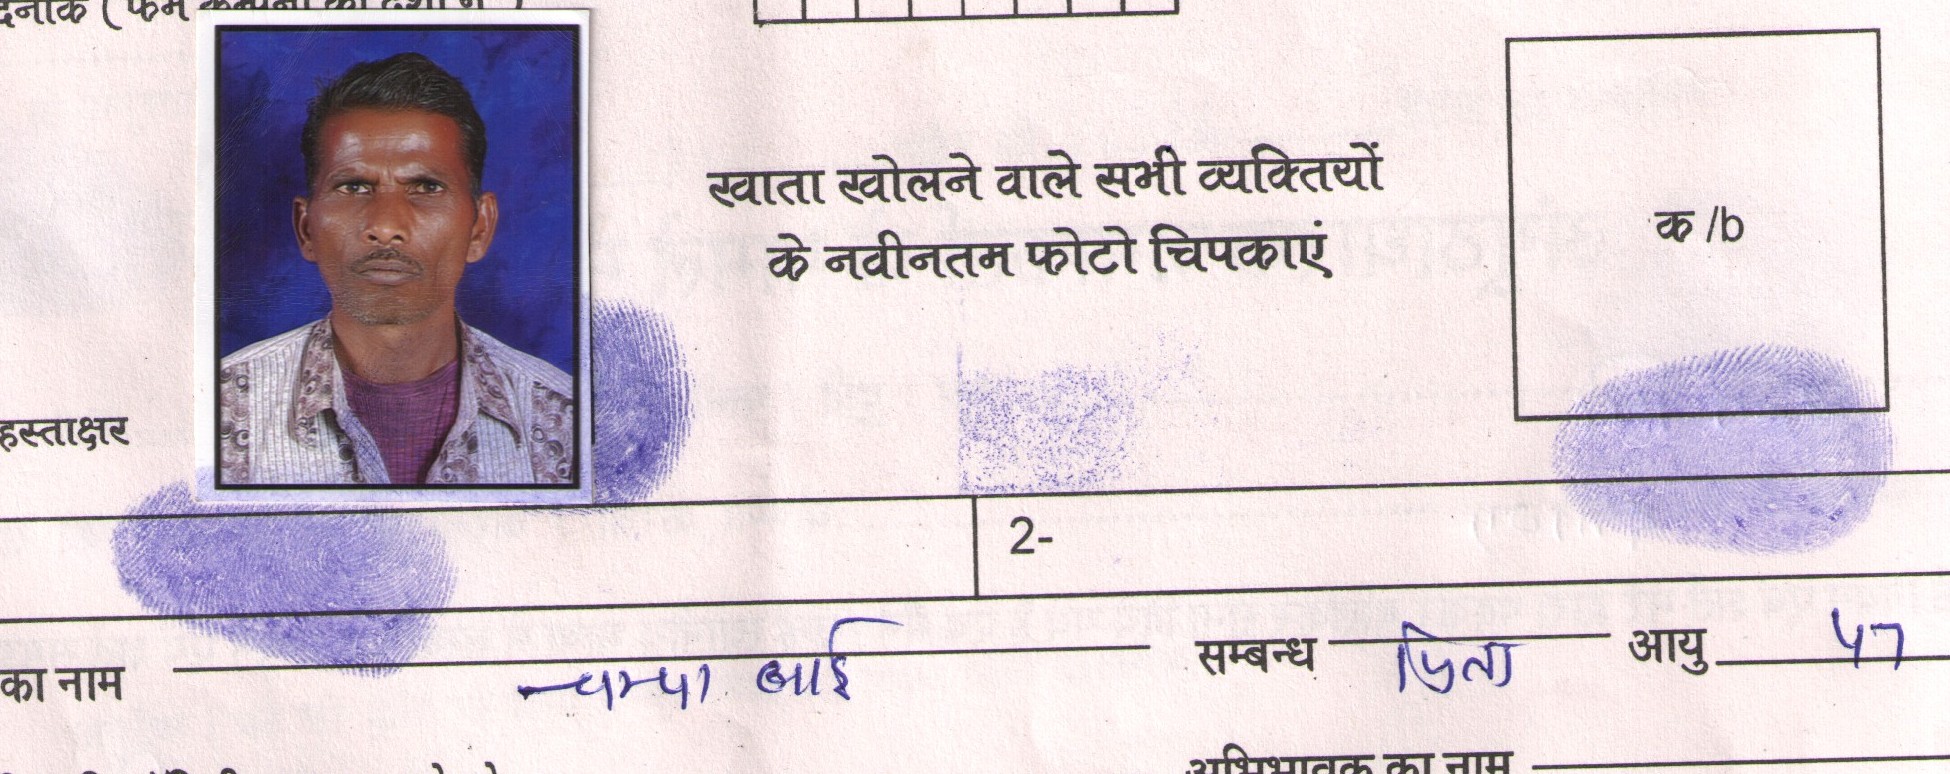 दिनांक ( फर्म कम्पनी की दशा में )
खाता खोलने वाले सभी व्यक्तियों
के नवीनतम फोटो चिपकाएं
क /b
हस्ताक्षर
2-
का नाम चम्पा बाई सम्बन्ध पिता आयु 47
अभिभावक का नाम